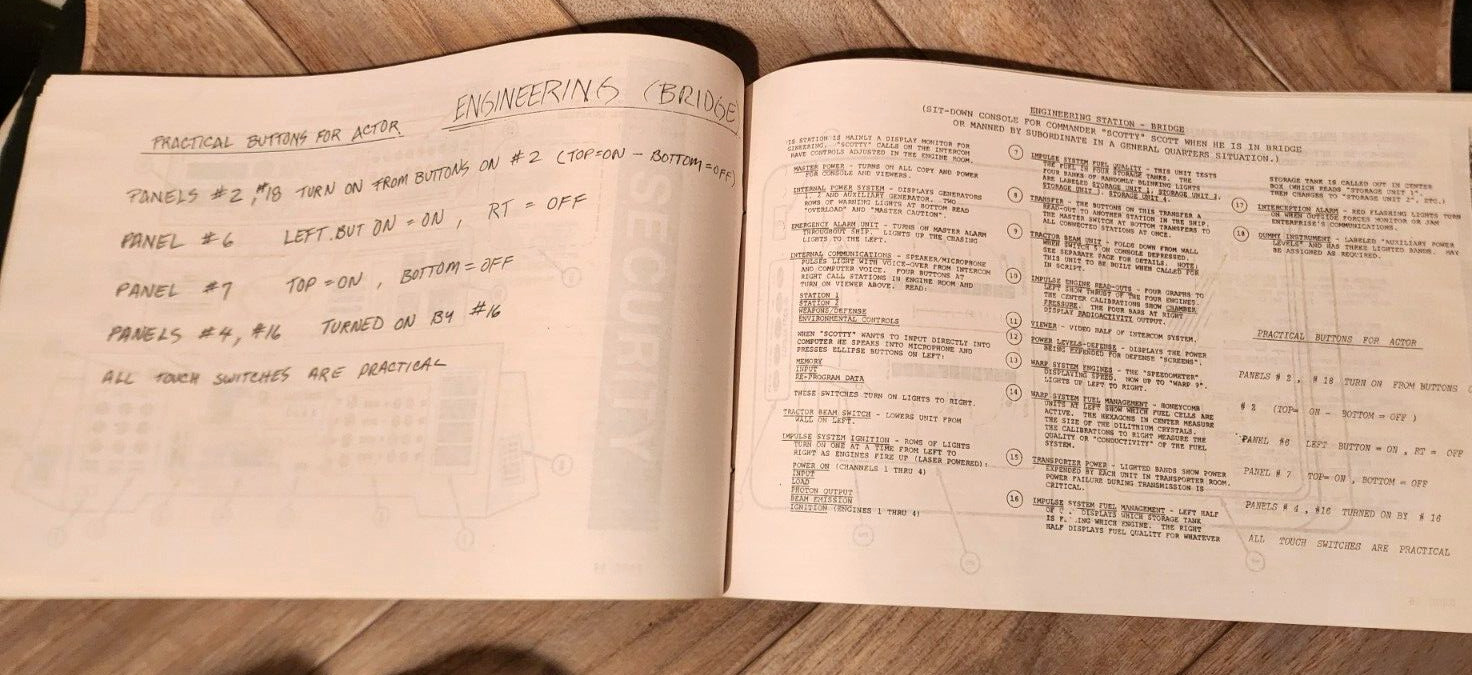 ENGINEERING (BRIDGE)
PRACTICAL BUTTONS FOR ACTOR
PANELS #2, #18 TURN ON FROM BUTTONS ON #2 (TOP=ON - BOTTOM=OFF)
PANEL #6 LEFT.BUT ON = ON, RT = OFF
PANEL #7 TOP = ON, BOTTOM = OFF
PANELS #4, #16 TURNED ON BY #16
ALL TOUCH SWITCHES ARE PRACTICAL
ENGINEERING STATION - BRIDGE
(SIT-DOWN CONSOLE FOR COMMANDER "SCOTTY" SCOTT WHEN HE IS IN BRIDGE
OR MANNED BY SUBORDINATE IN A GENERAL QUARTERS SITUATION.)
STATION IS MAINLY A DISPLAY MONITOR FOR
"SCOTTY" CALLS ON THE INTERCOM
HAVE CONTROLS ADJUSTED IN THE ENGINE ROOM.
MASTER POWER - TURNS ON ALL COPY AND POWER
FOR CONSOLE AND VIEWERS.
INTERNAL POWER SYSTEM - DISPLAYS GENERATORS
1, 2 AND AUXILIARY GENERATOR. TWO
ROWS OF WARNING LIGHTS AT BOTTOM READ
"OVERLOAD" AND "MASTER CAUTION".
EMERGENCY ALARM UNIT - TURNS ON MASTER ALARM
THROUGHOUT SHIP. LIGHTS UP THE CHASING
LIGHTS TO THE LEFT.
INTERNAL COMMUNICATIONS - SPEAKER/MICROPHONE
PULSES LIGHT WITH VOICE-OVER FROM INTERCOM
AND COMPUTER VOICE. FOUR BUTTONS AT
RIGHT CALL STATIONS IN ENGINE ROOM AND
TURN ON VIEWER ABOVE. READ:
STATION 1
STATION 2
WEAPONS/DEFENSE
ENVIRONMENTAL CONTROLS
WHEN "SCOTTY" WANTS TO INPUT DIRECTLY INTO
COMPUTER HE SPEAKS INTO MICROPHONE AND
PRESSES ELLIPSE BUTTONS ON LEFT:
MEMORY
INPUT
RE-PROGRAM DATA
THESE SWITCHES TURN ON LIGHTS TO RIGHT.
TRACTOR BEAM SWITCH - LOWERS UNIT FROM
WALL ON LEFT.
IMPULSE SYSTEM IGNITION - ROWS OF LIGHTS
TURN ON ONE AT A TIME FROM LEFT TO
RIGHT AS ENGINES FIRE UP (LASER POWERED):
POWER ON (CHANNELS 1 THRU 4)
INPUT
LOAD
PHOTON OUTPUT
BEAM EMISSION
IGNITION (ENGINES 1 THRU 4)
7 IMPULSE SYSTEM FUEL QUALITY - THIS UNIT TESTS
THE FUEL IN FOUR STORAGE TANKS. THE
FOUR BANKS OF RANDOMLY BLINKING LIGHTS
ARE LABELED STORAGE UNIT 1, STORAGE UNIT 2,
STORAGE UNIT 3, STORAGE UNIT 4.
8 TRANSFER - THE BUTTONS ON THIS TRANSFER A
READ-OUT TO ANOTHER STATION IN THE SHIP.
THE MASTER SWITCH AT BOTTOM TRANSFERS TO
ALL CONNECTED STATIONS AT ONCE.
9 TRACTOR BEAM UNIT - FOLDS DOWN FROM WALL
WHEN SWITCH 5 ON CONSOLE DEPRESSED.
SEE SEPARATE PAGE FOR DETAILS. NOTE:
THIS UNIT TO BE BUILT WHEN CALLED FOR
IN SCRIPT.
10 IMPULSE ENGINE READ-OUTS - FOUR GRAPHS TO
LEFT SHOW THRUST OF THE FOUR ENGINES.
THE CENTER CALIBRATIONS SHOW CHAMBER
PRESSURE. THE FOUR BARS AT RIGHT
DISPLAY RADIOACTIVITY OUTPUT.
11 VIEWER - VIDEO HALF OF INTERCOM SYSTEM.
12 POWER LEVELS-DEFENSE - DISPLAYS THE POWER
BEING EXPENDED FOR DEFENSE "SCREENS".
13 WARP SYSTEM ENGINES - THE "SPEEDOMETER"
DISPLAYING SPEED. NOW UP TO "WARP 9".
LIGHTS UP LEFT TO RIGHT.
14 WARP SYSTEM FUEL MANAGEMENT - HONEYCOMB
UNITS AT LEFT SHOW WHICH FUEL CELLS ARE
ACTIVE. THE HEXAGONS IN CENTER MEASURE
THE SIZE OF THE DILITHIUM CRYSTALS.
THE CALIBRATIONS TO RIGHT MEASURE THE
QUALITY OR "CONDUCTIVITY" OF THE FUEL
SYSTEM.
15 TRANSPORTER POWER - LIGHTED BANDS SHOW POWER
EXPENDED BY EACH UNIT IN TRANSPORTER ROOM.
POWER FAILURE DURING TRANSMISSION IS
CRITICAL.
16 IMPULSE SYSTEM FUEL MANAGEMENT - LEFT HALF
DISPLAYS WHICH STORAGE TANK
IS WHICH ENGINE. THE RIGHT
HALF DISPLAYS FUEL QUALITY FOR WHATEVER
STORAGE TANK IS CALLED OUT IN CENTER
BOX (WHICH READS "STORAGE UNIT 1",
THEN CHANGES TO "STORAGE UNIT 2", ETC.)
17 INTERCEPTION ALARM - RED FLASHING LIGHTS TURN
ON WHEN OUTSIDE FORCES MONITOR OR JAM
ENTERPRISE'S COMMUNICATIONS.
18 DUMMY INSTRUMENT - LABELED "AUXILIARY POWER
LEVELS" AND HAS THREE LIGHTED BANDS. MAY
BE ASSIGNED AS REQUIRED.
PRACTICAL BUTTONS FOR ACTOR
PANELS # 2, # 18 TURN ON FROM BUTTONS
# 2 (TOP= ON - BOTTOM = OFF )
PANEL #6 LEFT BUTTON = ON , RT = OFF
PANEL # 7 TOP= ON , BOTTOM = OFF
PANELS # 4 , #16 TURNED ON BY # 16
ALL TOUCH SWITCHES ARE PRACTICAL